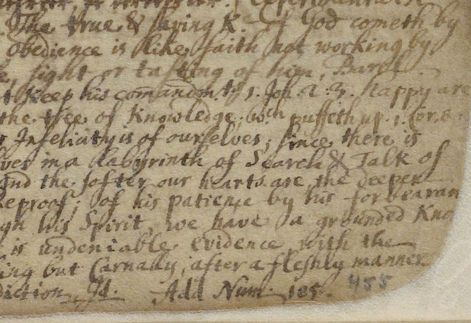 The true & saving K- of God cometh by
Obedience is like faith not working by
sight or tasting of him, Barcl.
keep his comandmts 1. Joh. 2. 3. Happy are
the tree of Knowledge, wch puffeth up. 1. Cor. 8.
Infelicity is of ourselves, since there is
in a Labyrinth of Search & Talk of
and the softer our hearts are the deeper
Reproof: of his patience by his forbearan
gh his Spirit, we have a grounded Kno
is undeniable Evidence with the
ing but Carnally, after a fleshly manner
diction, Id. Add Num. 185. 455